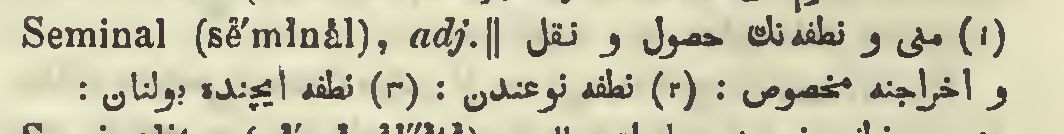 Seminal (sĕ′mĭnăl), adj. ‖ (۱) منی و نطفه‌نك حصول و نقل
و اخراجنه مخصوص : (۲) نطفه نوعندن : (۳) نطفه ایچنده بولنان :